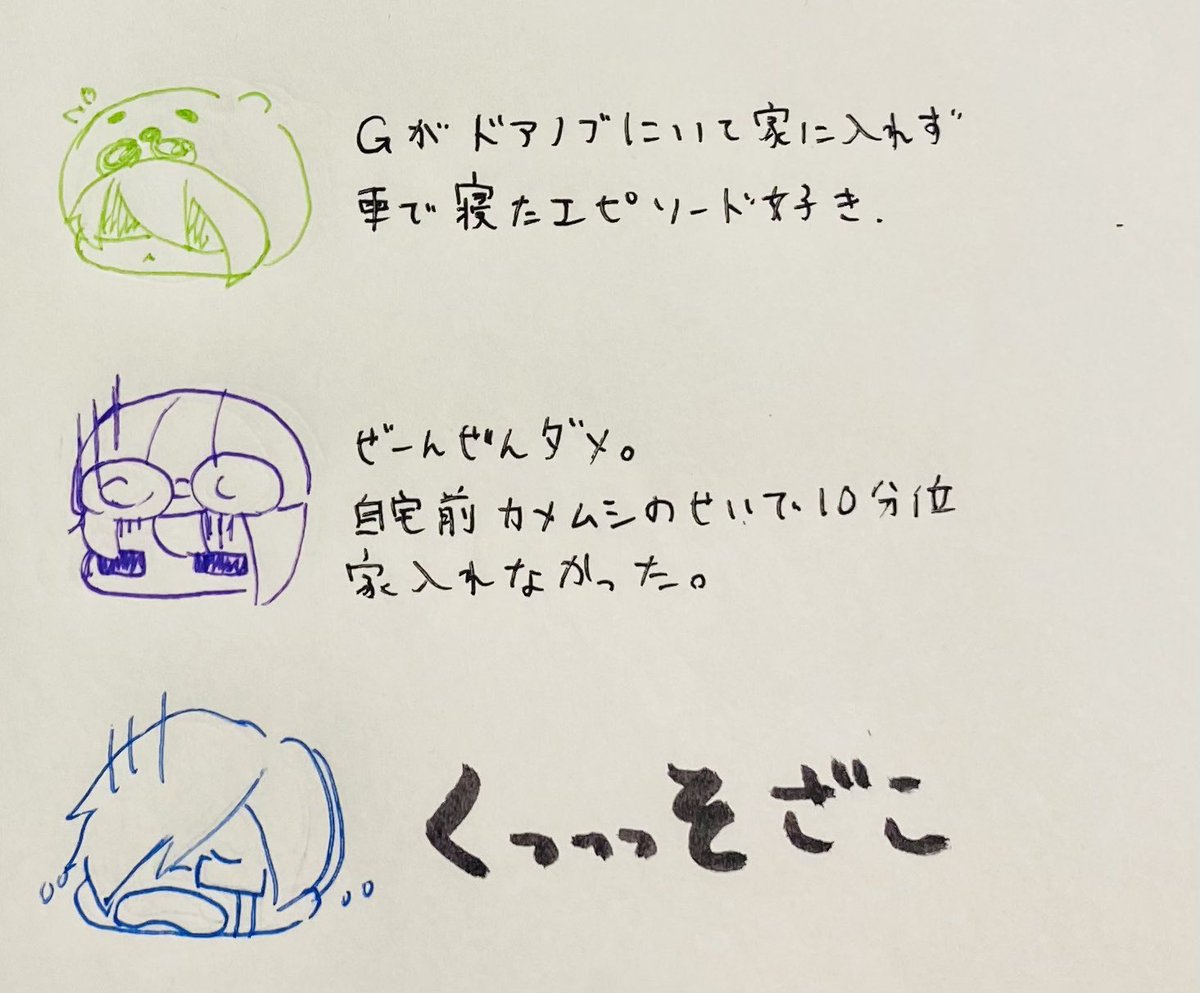 Gがドアノブにいて家に入れず
車で寝たエピソード好き.
ぜーんぜんダメ。
自宅前カメムシのせいで10分位
家入れなかった。
くっっっそざこ